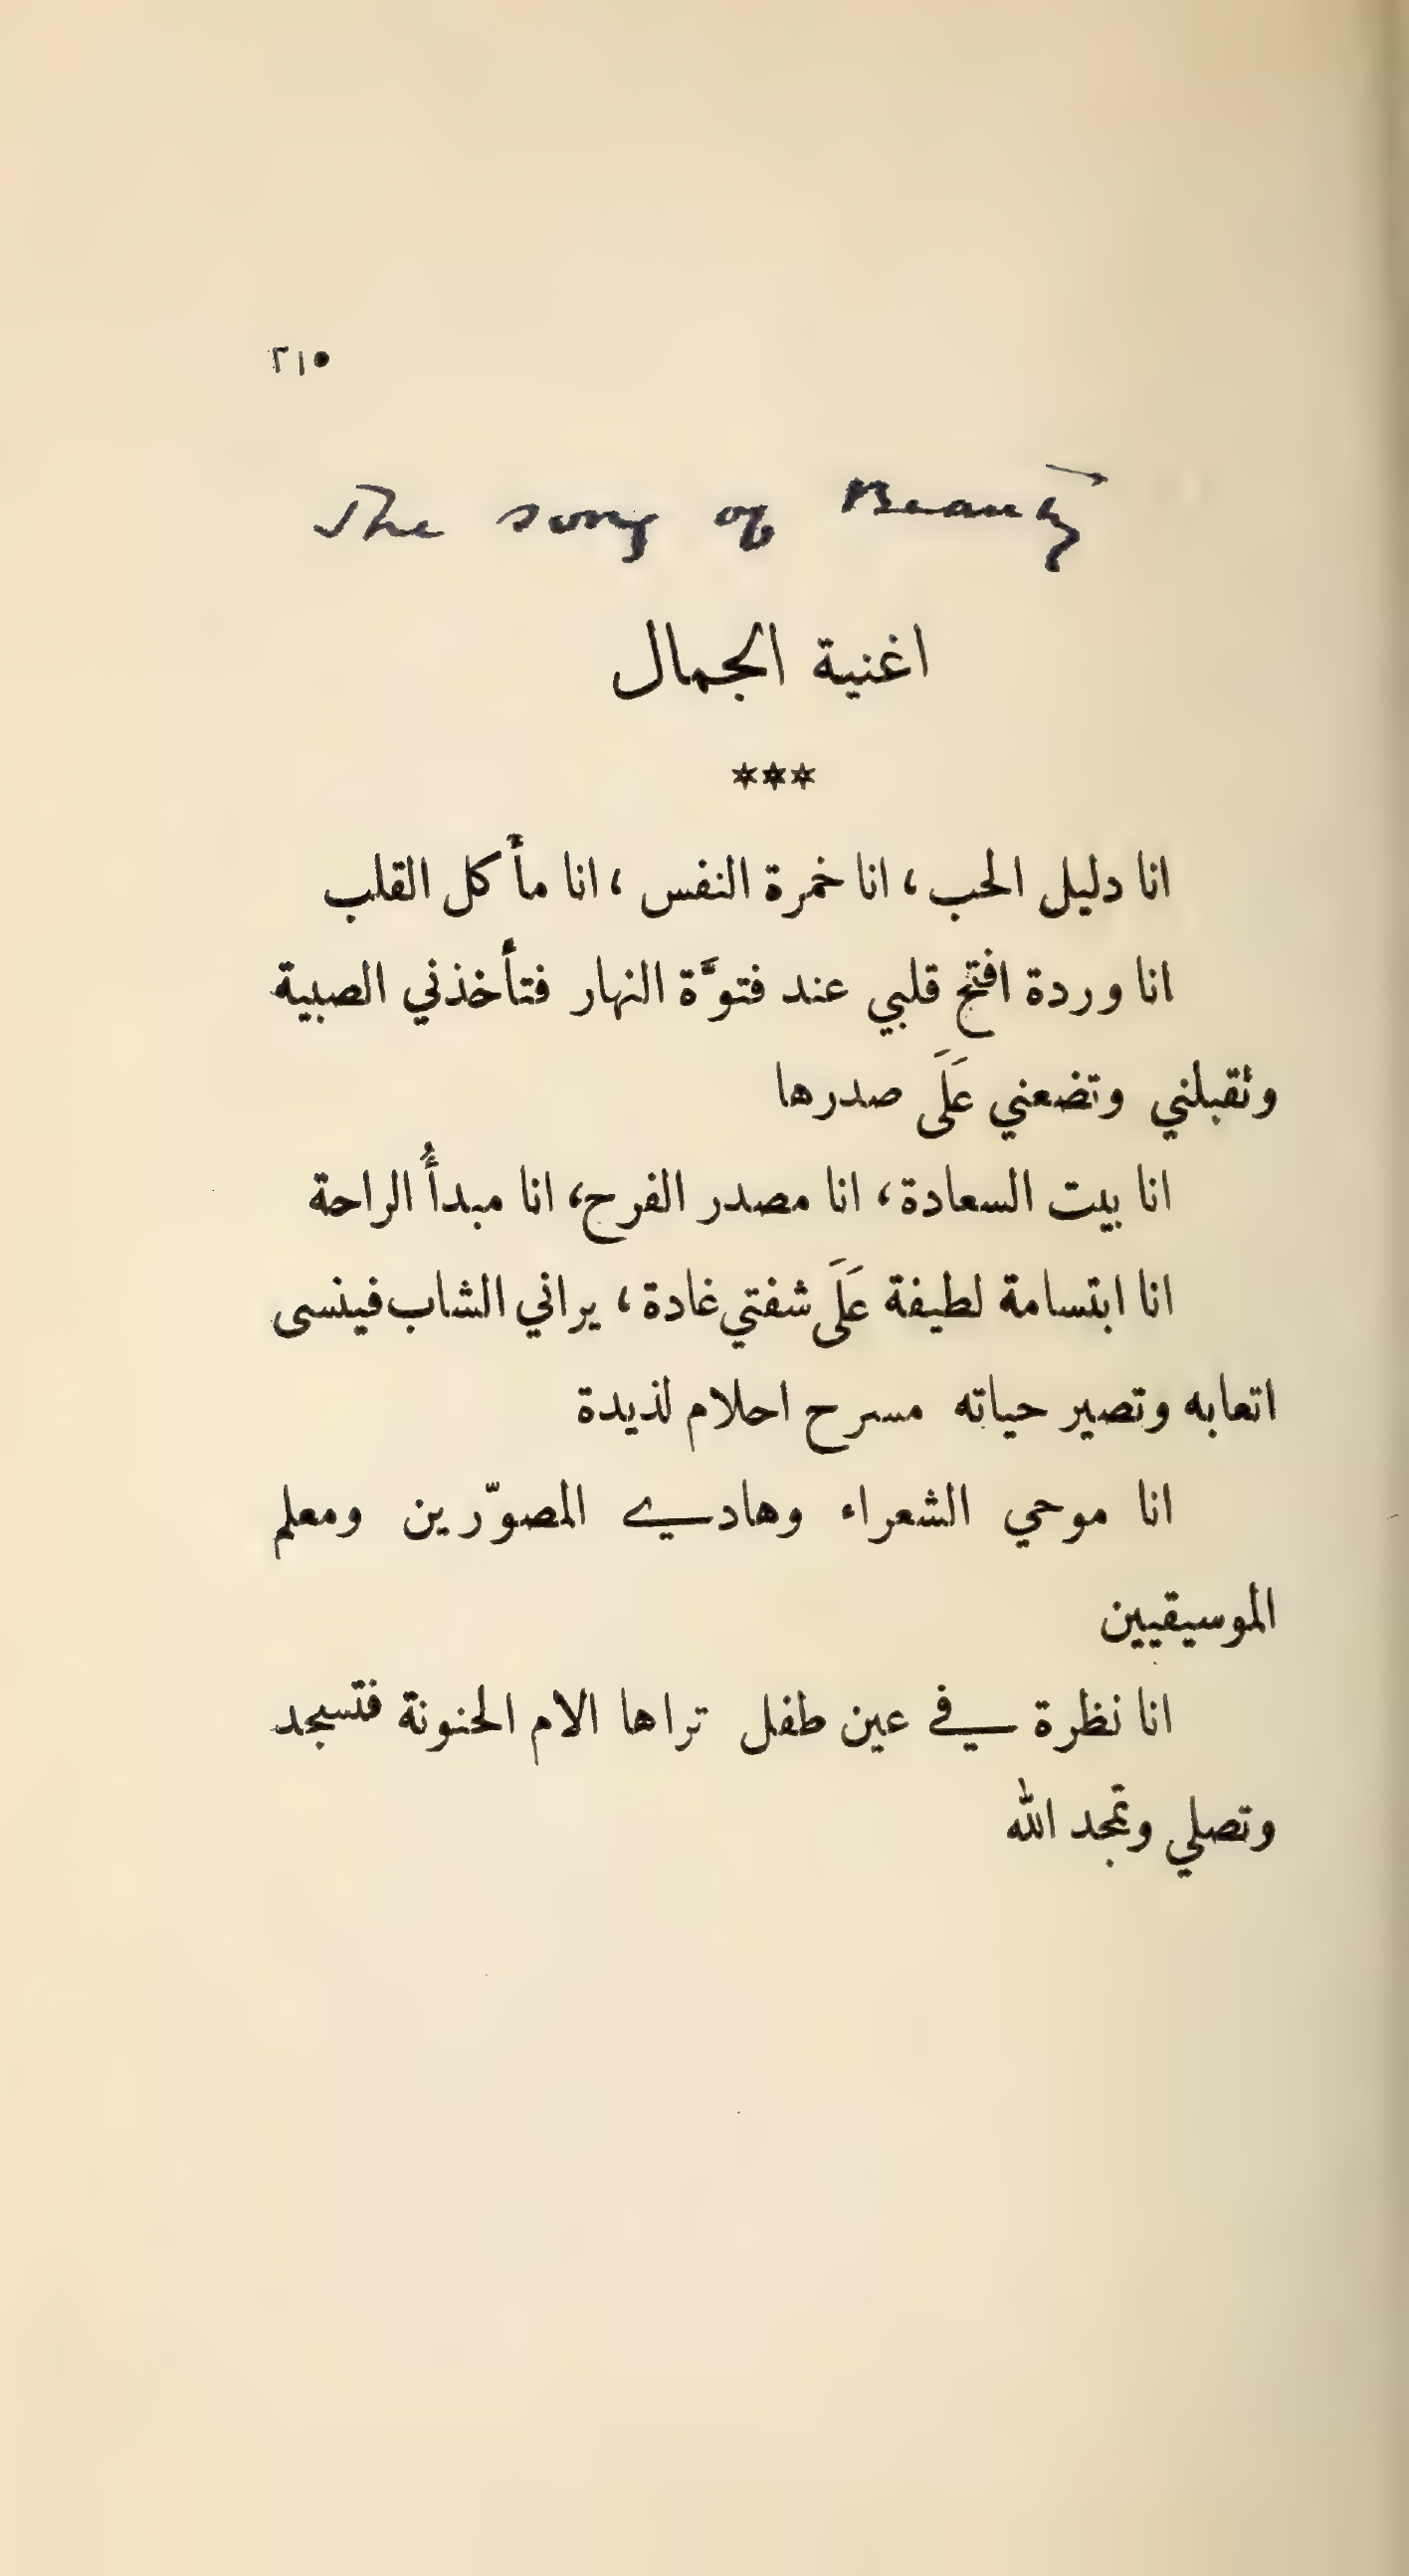 ٢١٥
The song of Beauty
اغنية الجمال
***
انا دليل الحب، انا خمرة النفس، انا مأكل القلب
انا وردة افتح قلبي عند فتوَّة النهار فتأخذني الصبية
وتقبلني وتضعني عَلَى صدرها
انا بيت السعادة، انا مصدر الفرح، انا مبدأُ الراحة
انا ابتسامة لطيفة عَلَى شفتي غادة، يراني الشاب فينسى
اتعابه وتصير حياته مسرح احلام لذيدة
انا موحي الشعراء وهادي المصوّرين ومعلم
الموسيقيين
انا نظرة في عين طفل تراها الام الحنونة فتسجد
وتصلي وتمجد الله